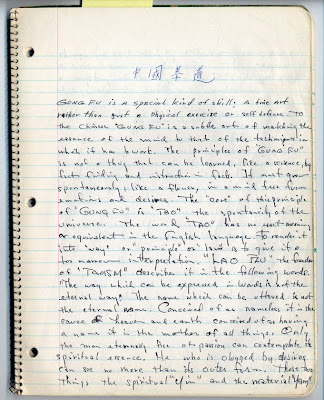 中國拳道
GUNG FU is a special kind of skill; a fine art
rather than just a physical exercise or self defense. To
the Chinese "GUNG FU" is a subtle art of matching the
essence of the mind to that of the techniques in
which it has to work. The principles of "GUNG FU"
is not a thing that can be learned, like a science, by
fact finding and instruction in facts. It must grow
spontaneously, like a flower, in a mind free from
emotions and desires. The "core" of this principle
of "GUNG FU" is TAO the spontanity of the
universe. The word TAO has no exact meaning
or equivalent in the English language. To render it
into "way" or "principle" or "law" is to give it a
too narrow interpretation. "LAO TZU" the founder
of "TAOISM" describes it in the following words.
The way which can be expressed in words is not the
eternal way: The name which can be uttered is not
the eternal name. Conceived of as nameless it is the
cause of heaven and earth conceived of as having
a name it is the mother of all things. Only
the man eternally free of passion can contemplate its
spiritual essence. He who is clogged by desires
can see no more than its outer form. These two
things the spiritual "Yin" and the material "Yang"